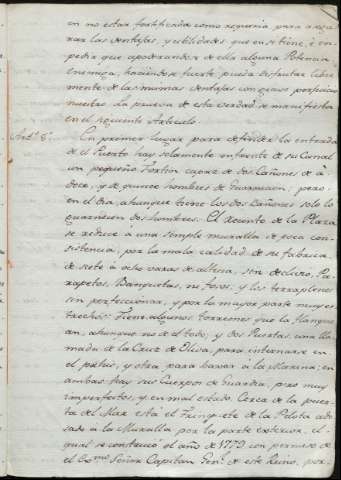 en no estar fortificada como requeria, para asegu-
rar las ventajas, y utilidades que en si tiene, é im-
pedir que apoderandose de ella alguna Potencia
Enemiga, haciendose fuerte pueda disfrutar libre-
mente de las mismas ventajas con grave perjuicio
nuestro. La prueva de esta verdad se manifiesta
en el siguiente Articulo.
Art.º 8º. En primer lugar para defender la entrada
de el Puerto hay solamente enfrente de su Canal
un pequeño Fortin capaz de dos Cañones de á
doce, y de quince hombres de Guarnicion; pero
en el dia, ahunque tiene los dos Cañones solo lo
guarnecen dos hombres. El recinto de la Plaza
se reduce á una simple muralla de poca con-
sistencia, por la mala calidad de su fabrica,
de siete á ocho varas de altura, sin declivio, Pa-
rapetos, Banquetas, ni fosos; y los terraplenes
sin perfeccionar, y por la mayor parte muy es-
trechos. Tiene algunos torreones que la flanque-
an, ahunque no de el todo; y dos Puertas, una lla-
mada de la Cruz de Elisa, para internarse en
el pahis, y otra para baxar á la Marina: en
ambas hay sus Cuerpos de Guardia, pero muy
imperfectos, y en mal estado. Cerca de la puer-
ta del Mar está el Trinquete de la Pelota ado-
sado á la Muralla por la parte exterior, el
qual se construció el año de 1773 con permiso de
el Exmo Señor Capitan Genl. de este Reino, por-